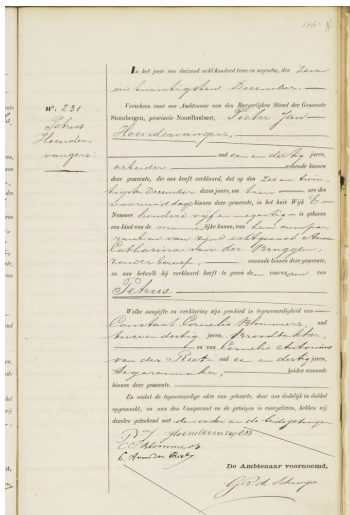 In het jaar een duizend acht honderd twee en negentig, den Zeven
en twintigsten December. —
N°. 231
Petrus
Hoender-
vangers
Verscheen voor ons Ambtenaar van den Burgerlijken Stand der Gemeente
Steenbergen, provincie Noordbrabant, Pieter Jan —
Hoendervangers, —
oud een en dertig jaren,
arbeider — wonende binnen
deze gemeente, die ons heeft verklaard, dat op den zes en twin-
tigsten December dezes jaars, om tien — ure des
voormiddags binnen deze gemeente, in het huis Wijk E —
Nommer honderd vijf en negentig — is geboren
een kind van de mannelijke kunne, van hem compa-
rant en van zijne echtgenoot Anna
Catharina van der Bruggen,
zonder beroep, — wonende binnen deze gemeente,
en aan hetwelk hij verklaard heeft te geven den voornaam van
Petrus. —
Welke aangifte en verklaring zijn geschied in tegenwoordigheid van —
Constant Cornelis Blommers, oud
twee en dertig jaren, Broodbakker,
en van Cornelis Antonius
van der Riet oud een en dertig jaren,
Sigarenmaker, — beiden wonende
binnen deze gemeente. —
En nadat de tegenwoordige akte van geboorte, door ons dadelijk in dubbel
opgemaakt, en aan den Comparant en de getuigen is voorgelezen, hebben wij
dezelve geteekend met den vader en de beide getuigen
P. J. Hoendervangers
C. C. Blommers
C. A van der Riet
De Ambtenaar voornoemd,